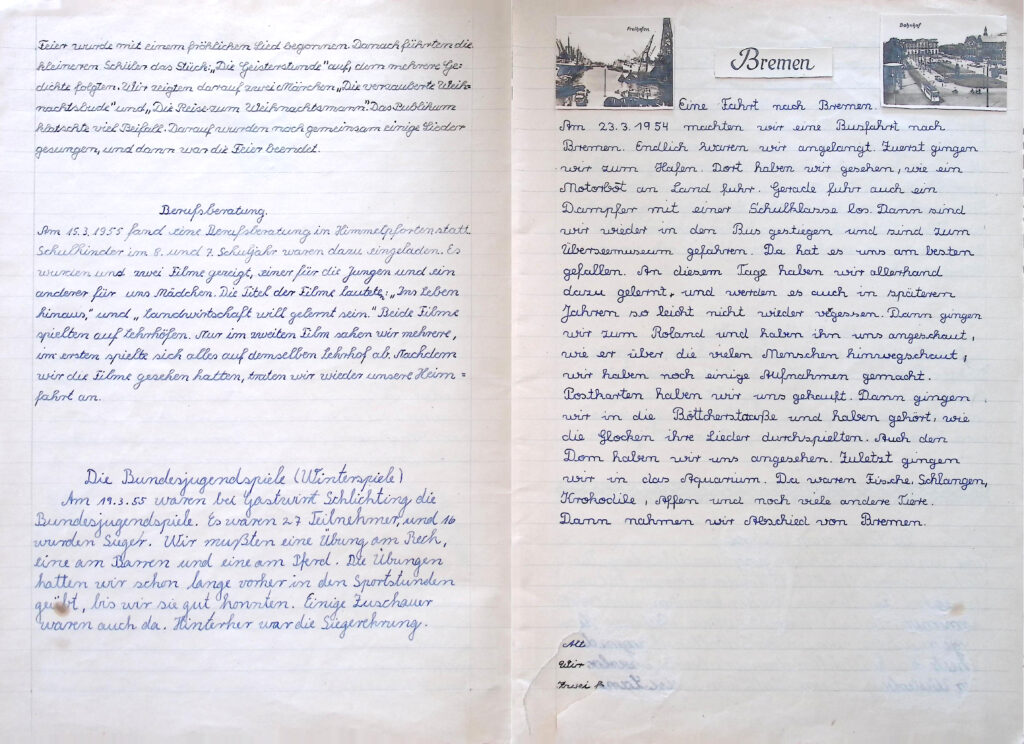 Feier wurde mit einem fröhlichen Lied begonnen. Danach führten die
kleineren Schüler das Stück: „Die Geisterstunde" auf, dem mehrere Ge=
dichte folgten. Wir zeigten darauf zwei Märchen „Die verzauberte Weih=
nachtsbude" und „Die Reise zum Weihnachtsmann". Das Publikum
klatschte viel Beifall. Darauf wurden noch gemeinsam einige Lieder
gesungen, und dann war die Feier beendet.
Berufsberatung.
Am 15.3.1955 fand eine Berufsberatung in Himmelpforten statt
Schulkinder im 8. und 9. Schuljahr waren dazu eingeladen. Es
wurden und zwei Filme gezeigt, einer für die Jungen und ein
anderer für uns Mädchen. Die Titel der Filme lautete: „Ins Leben
hinaus," und „Landwirtschaft will gelernt sein." Beide Filme
spielten auf Lehrhöfen. Nur im zweiten Film sahen wir mehrere,
im ersten spielte sich alles auf demselben Lehrhof ab. Nachdem
wir die Filme gesehen hatten, traten wir wieder unsere Heim=
fahrt an.
Die Bundesjugendspiele (Winterspiele)
Am 19.3.55 waren bei Gastwirt Schlichting die
Bundesjugendspiele. Es waren 27 Teilnehmer, und 16
wurden Sieger. Wir mußten eine Übung am Reck,
eine am Barren und eine am Pferd. Die Übungen
hatten wir schon lange vorher in den Sportstunden
geübt, bis wir sie gut konnten. Einige Zuschauer
waren auch da. Hinterher war die Siegerehrung.
Freihafen
Bremen
Bahnhof
Eine Fahrt nach Bremen.
Am 23.3.1954 machten wir eine Busfahrt nach
Bremen. Endlich waren wir angelangt. Zuerst gingen
wir zum Hafen. Dort haben wir gesehen, wie ein
Motorboot an Land fuhr. Gerade fuhr auch ein
Dampfer mit einer Schulklasse los. Dann sind
wir wieder in den Bus gestiegen und sind zum
Überseemuseum gefahren. Da hat es uns am besten
gefallen. An diesem Tage haben wir allerhand
dazu gelernt, und werden es auch in späterem
Jahren so leicht nicht wieder vegessen. Dann gingen
wir zum Roland und haben ihn uns angeschaut,
wie er über die vielen Menschen hinwegschaut,
wir haben noch einige Aufnahmen gemacht.
Postkarten haben wir uns gekauft. Dann gingen
wir in die Böttcherstaaße und haben gehört, wie
die Glocken ihre Lieder durchspielten. Auch den
Dom haben wir uns angesehen. Zuletzt gingen
wir in das Aquarium. Da waren Fische, Schlangen,
Krokodile, Affen und noch viele andere Tiere.
Dann nahmen wir Abschied von Bremen.
Wir